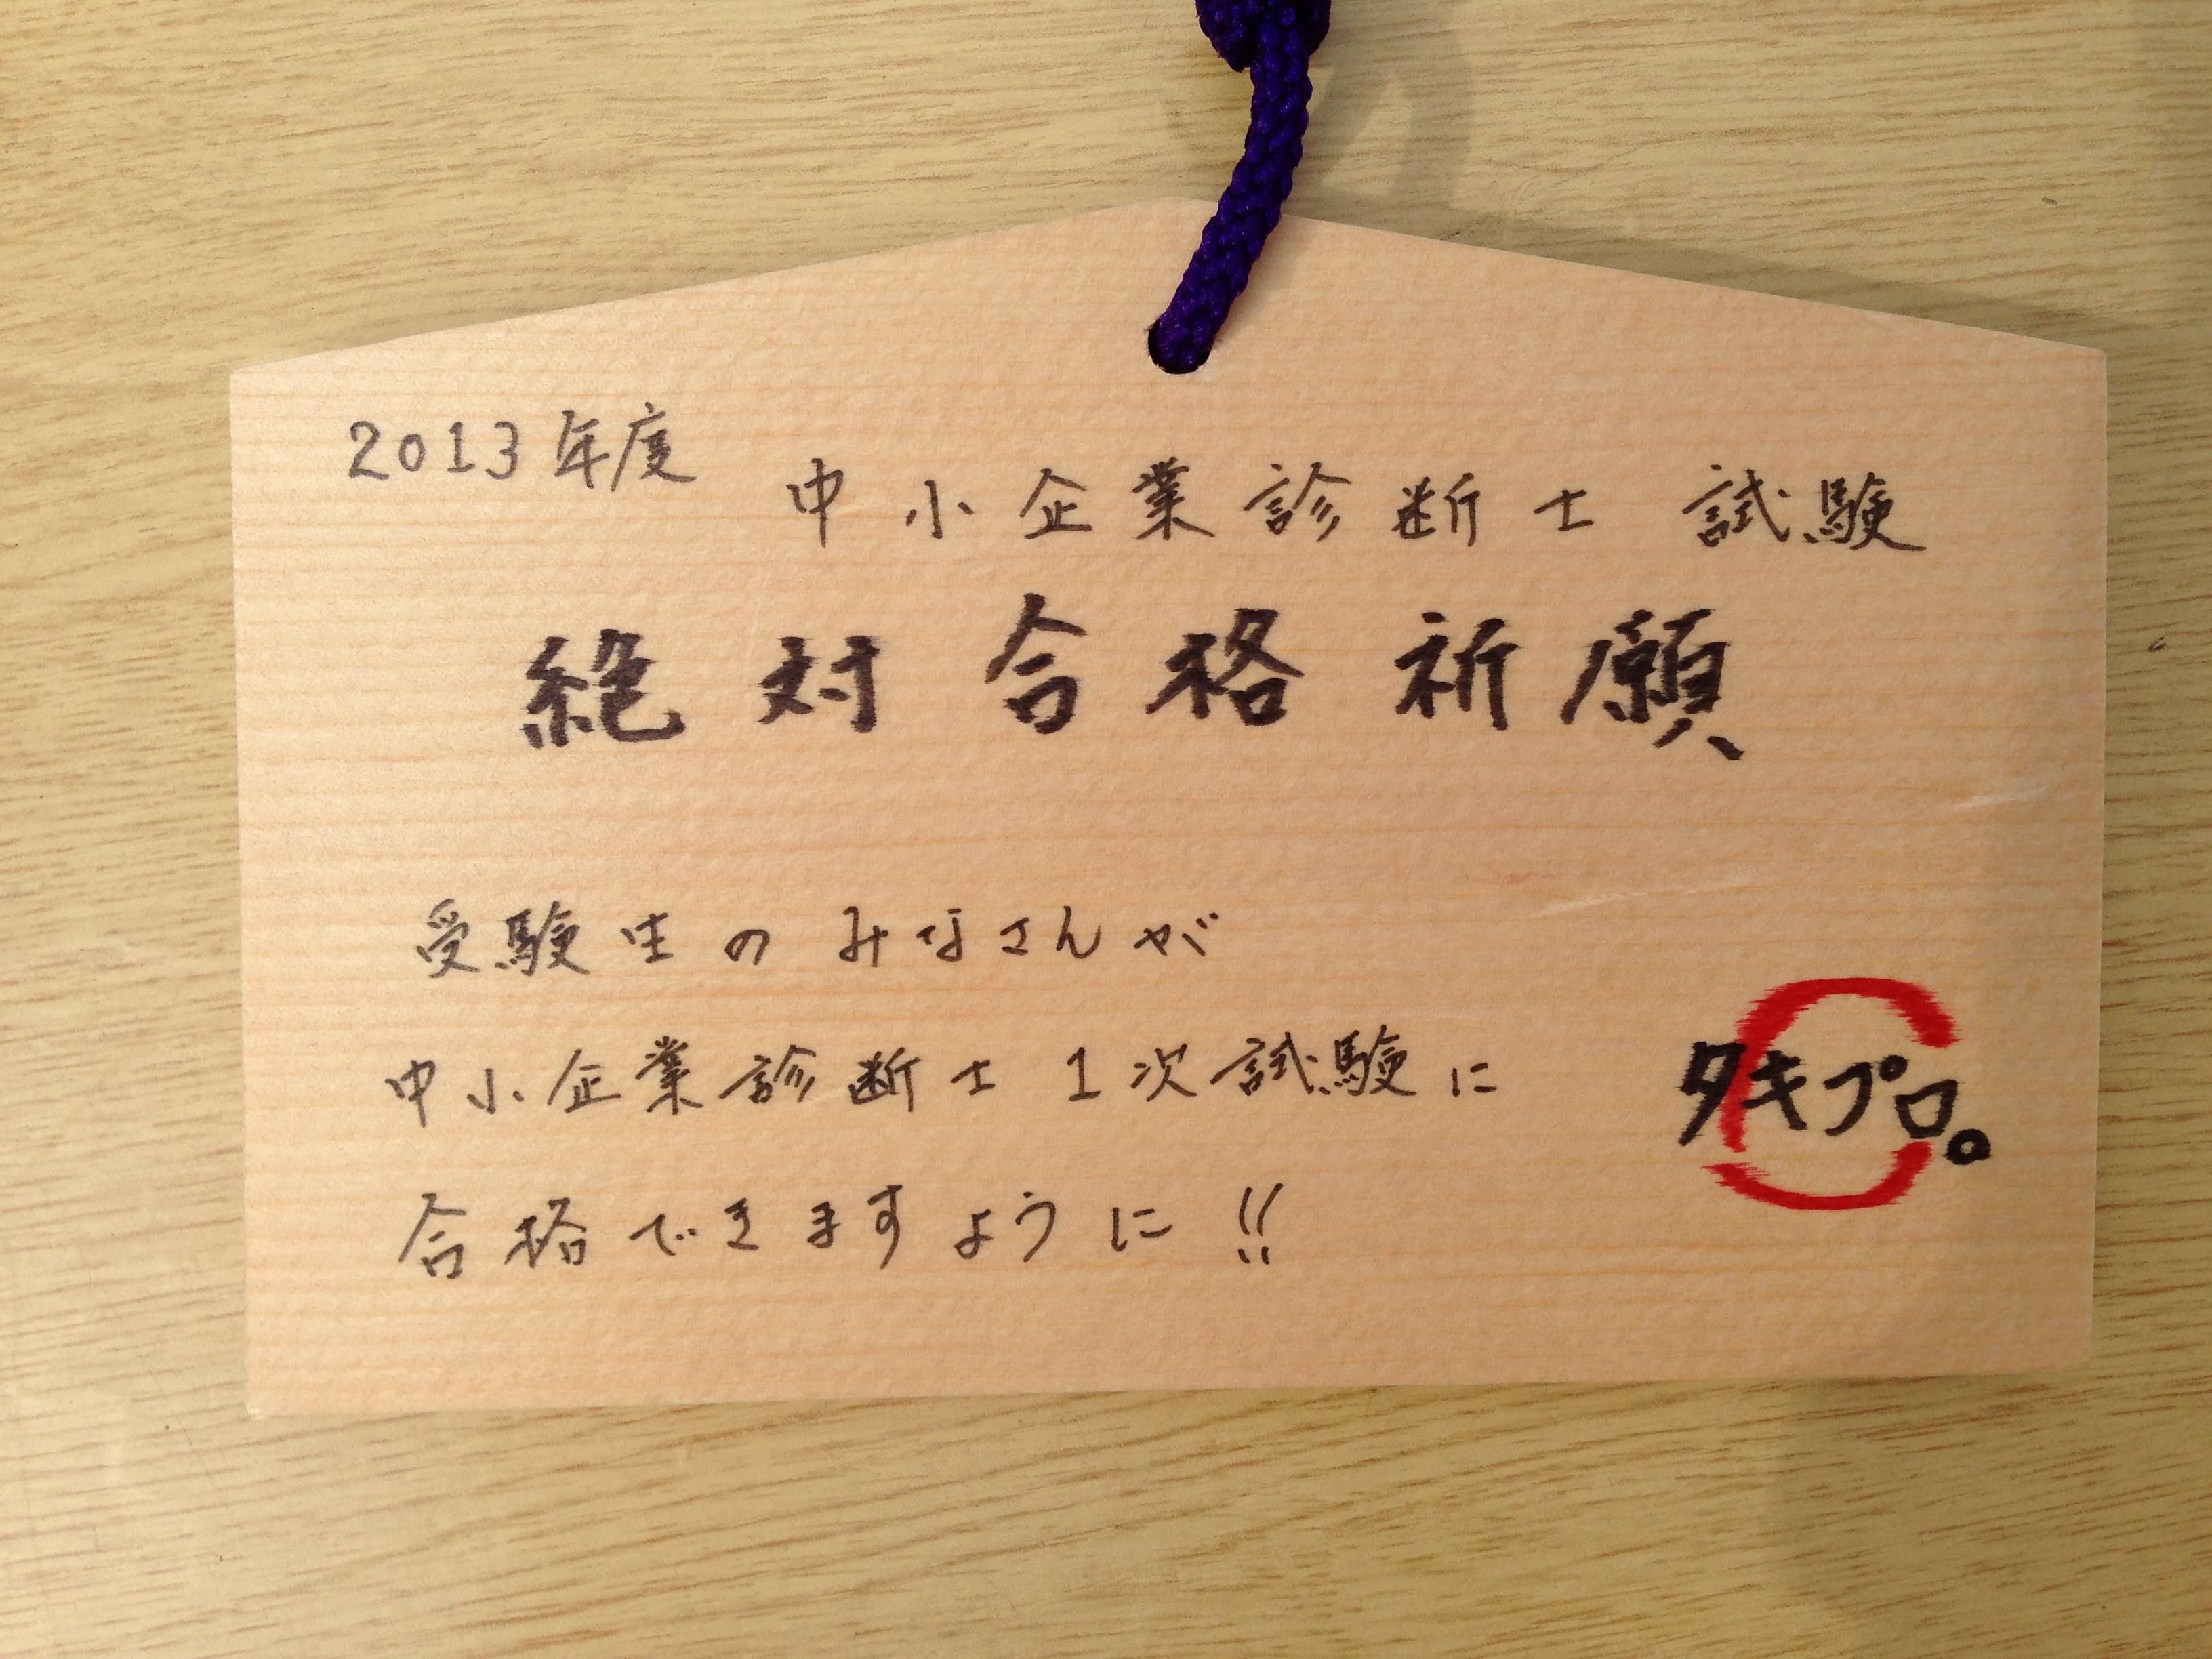 2013年度 中小企業診断士 試験
絶対合格祈願
受験生のみなさんが
中小企業診断士1次試験に
合格できますように!!
タキプロ。